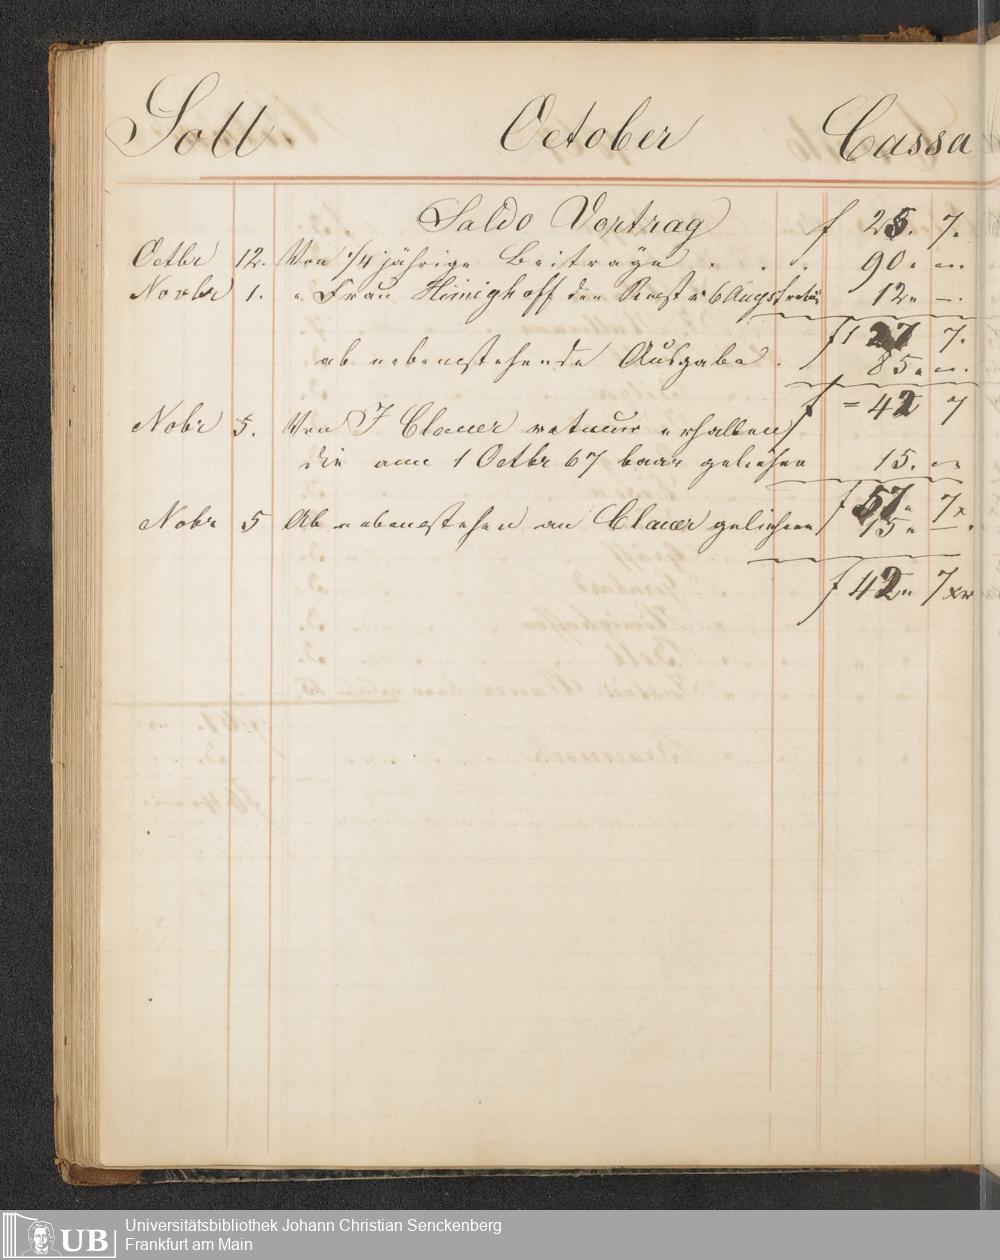 Soll October Cassa
Saldo Vortrag f 25. 7.
Octbr 12. Von 1/4 jährige Beiträge . . . 90 " —.
Novbr 1. " Frau Hinighoff den Rest v 6 Augst 12 " —.
f 127 7.
ab nebenstehende Ausgabe . 85 " —.
f = 42 7
Nobr 5. Von J Clauer retour erhalten
die am 1 Octbr 67 baar geliehen 15. —
f 57 " 7 x
Nobr 5 Ab nebenstehen an Clauer geliehen 15 " —.
f 42 " 7 xr
UB
Universitätsbibliothek Johann Christian Senckenberg
Frankfurt am Main